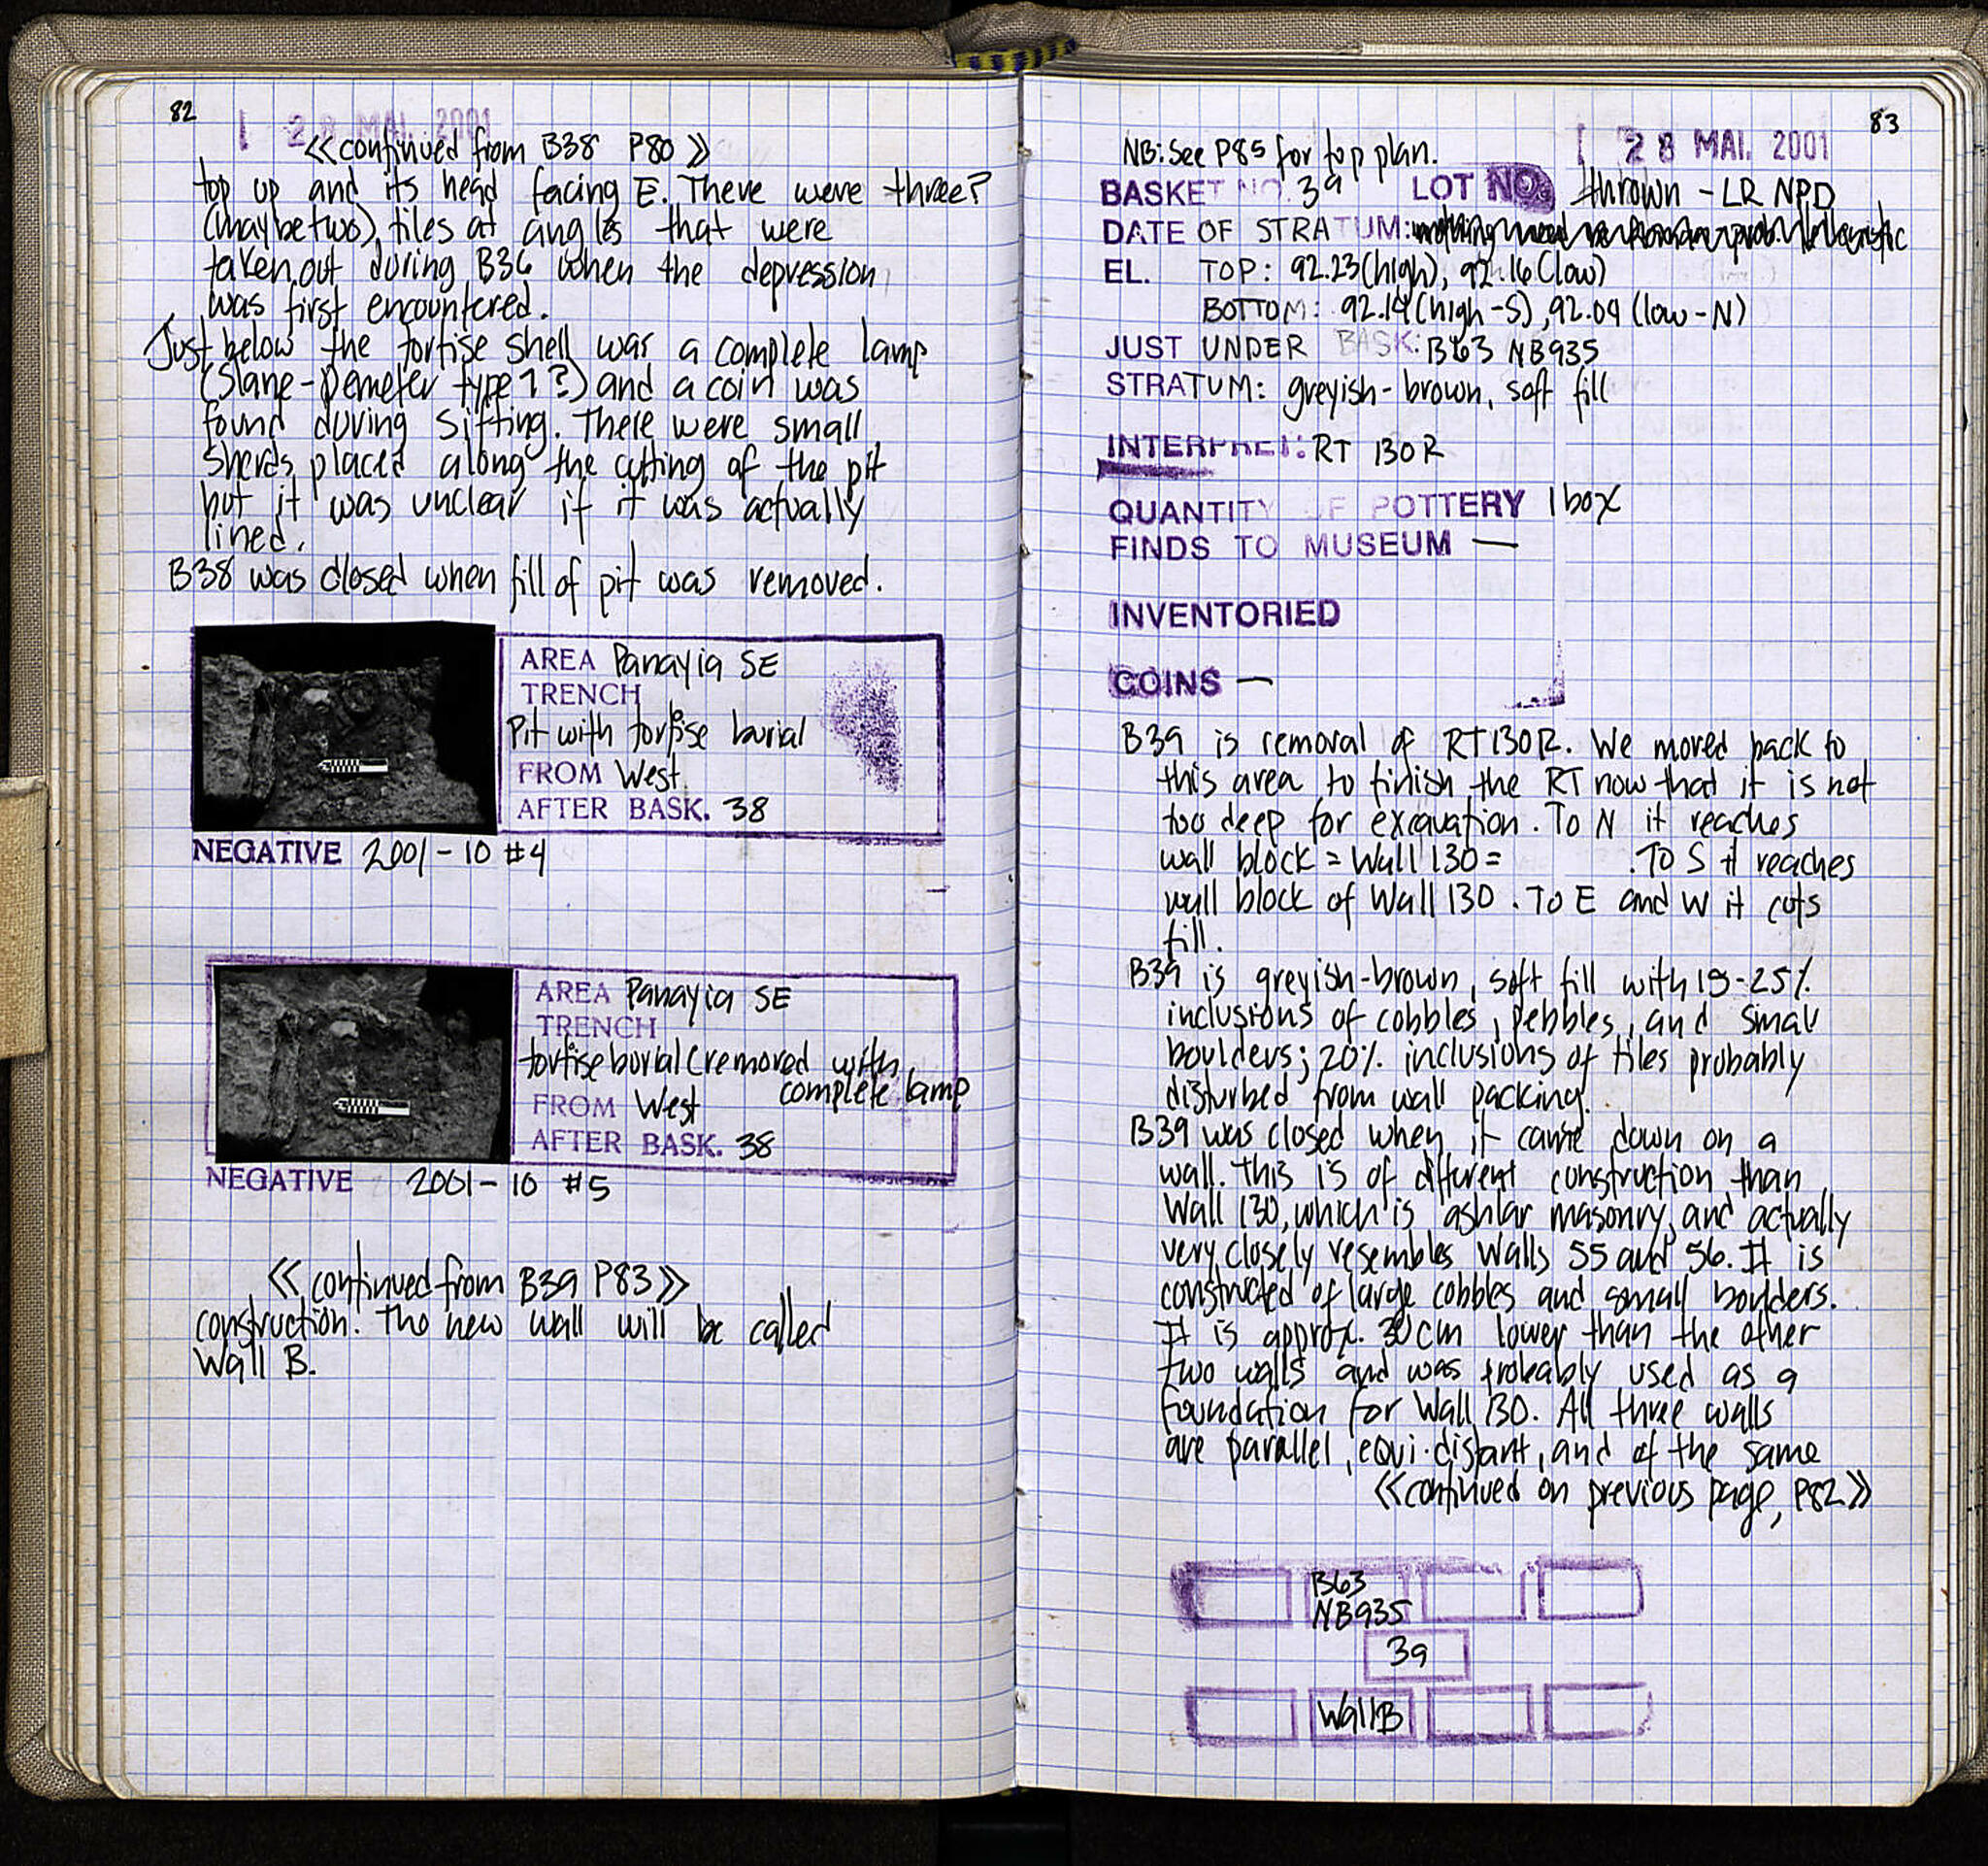 82
28 MAI. 2001
<<continued from B38 P80>>
top up and its head facing E. There were three?
(maybe two) tiles at angles that were
taken out during B36 when the depression
was first encountered.
Just below the tortise shell was a complete lamp
(Slane-Demeter type 1?) and a coin was
found during sifting. There were small
sherds placed along the cutting of the pit
but it was unclear if it was actually
lined.
B38 was closed when fill of pit was removed.
AREA Panayia SE
TRENCH
Pit with tortise burial
FROM West
AFTER BASK. 38
NEGATIVE 2001-10 #4
AREA Panayia SE
TRENCH
tortise burial (removed with
complete lamp
FROM West
AFTER BASK. 38
NEGATIVE 2001-10 #5
<<continued from B39 P83>>
construction. The new wall will be called
Wall B.
83
28 MAI. 2001
NB: See P85 for top plan.
BASKET NO. 39 LOT NO. thrown - LR NPD
DATE OF STRATUM:
EL. TOP: 92.23(high), 92.16(low)
BOTTOM: 92.14(high-S), 92.09 (low-N)
JUST UNDER BASK: B63 NB935
STRATUM: greyish-brown, soft fill
INTERPRET: RT 130R
QUANTITY OF POTTERY 1 box
FINDS TO MUSEUM —
INVENTORIED
COINS —
B39 is removal of RT130R. We moved back to
this area to finish the RT now that it is not
too deep for excavation. To N it reaches
wall block = Wall 130 = . To S it reaches
wall block of Wall 130. To E and W it cuts
fill.
B39 is greyish-brown, soft fill with 15-25%
inclusions of cobbles, pebbles, and small
boulders; 20% inclusions of tiles probably
disturbed from wall packing.
B39 was closed when it came down on a
wall. This is of different construction than
Wall 130, which is ashlar masonry, and actually
very closely resembles Walls 55 and 56. It is
constructed of large cobbles and small boulders.
It is approx. 30cm lower than the other
two walls and was probably used as a
foundation for Wall 130. All three walls
are parallel, equi-distant, and of the same
<<continued on previous page, P82>>
B63
NB935
39
Wall B